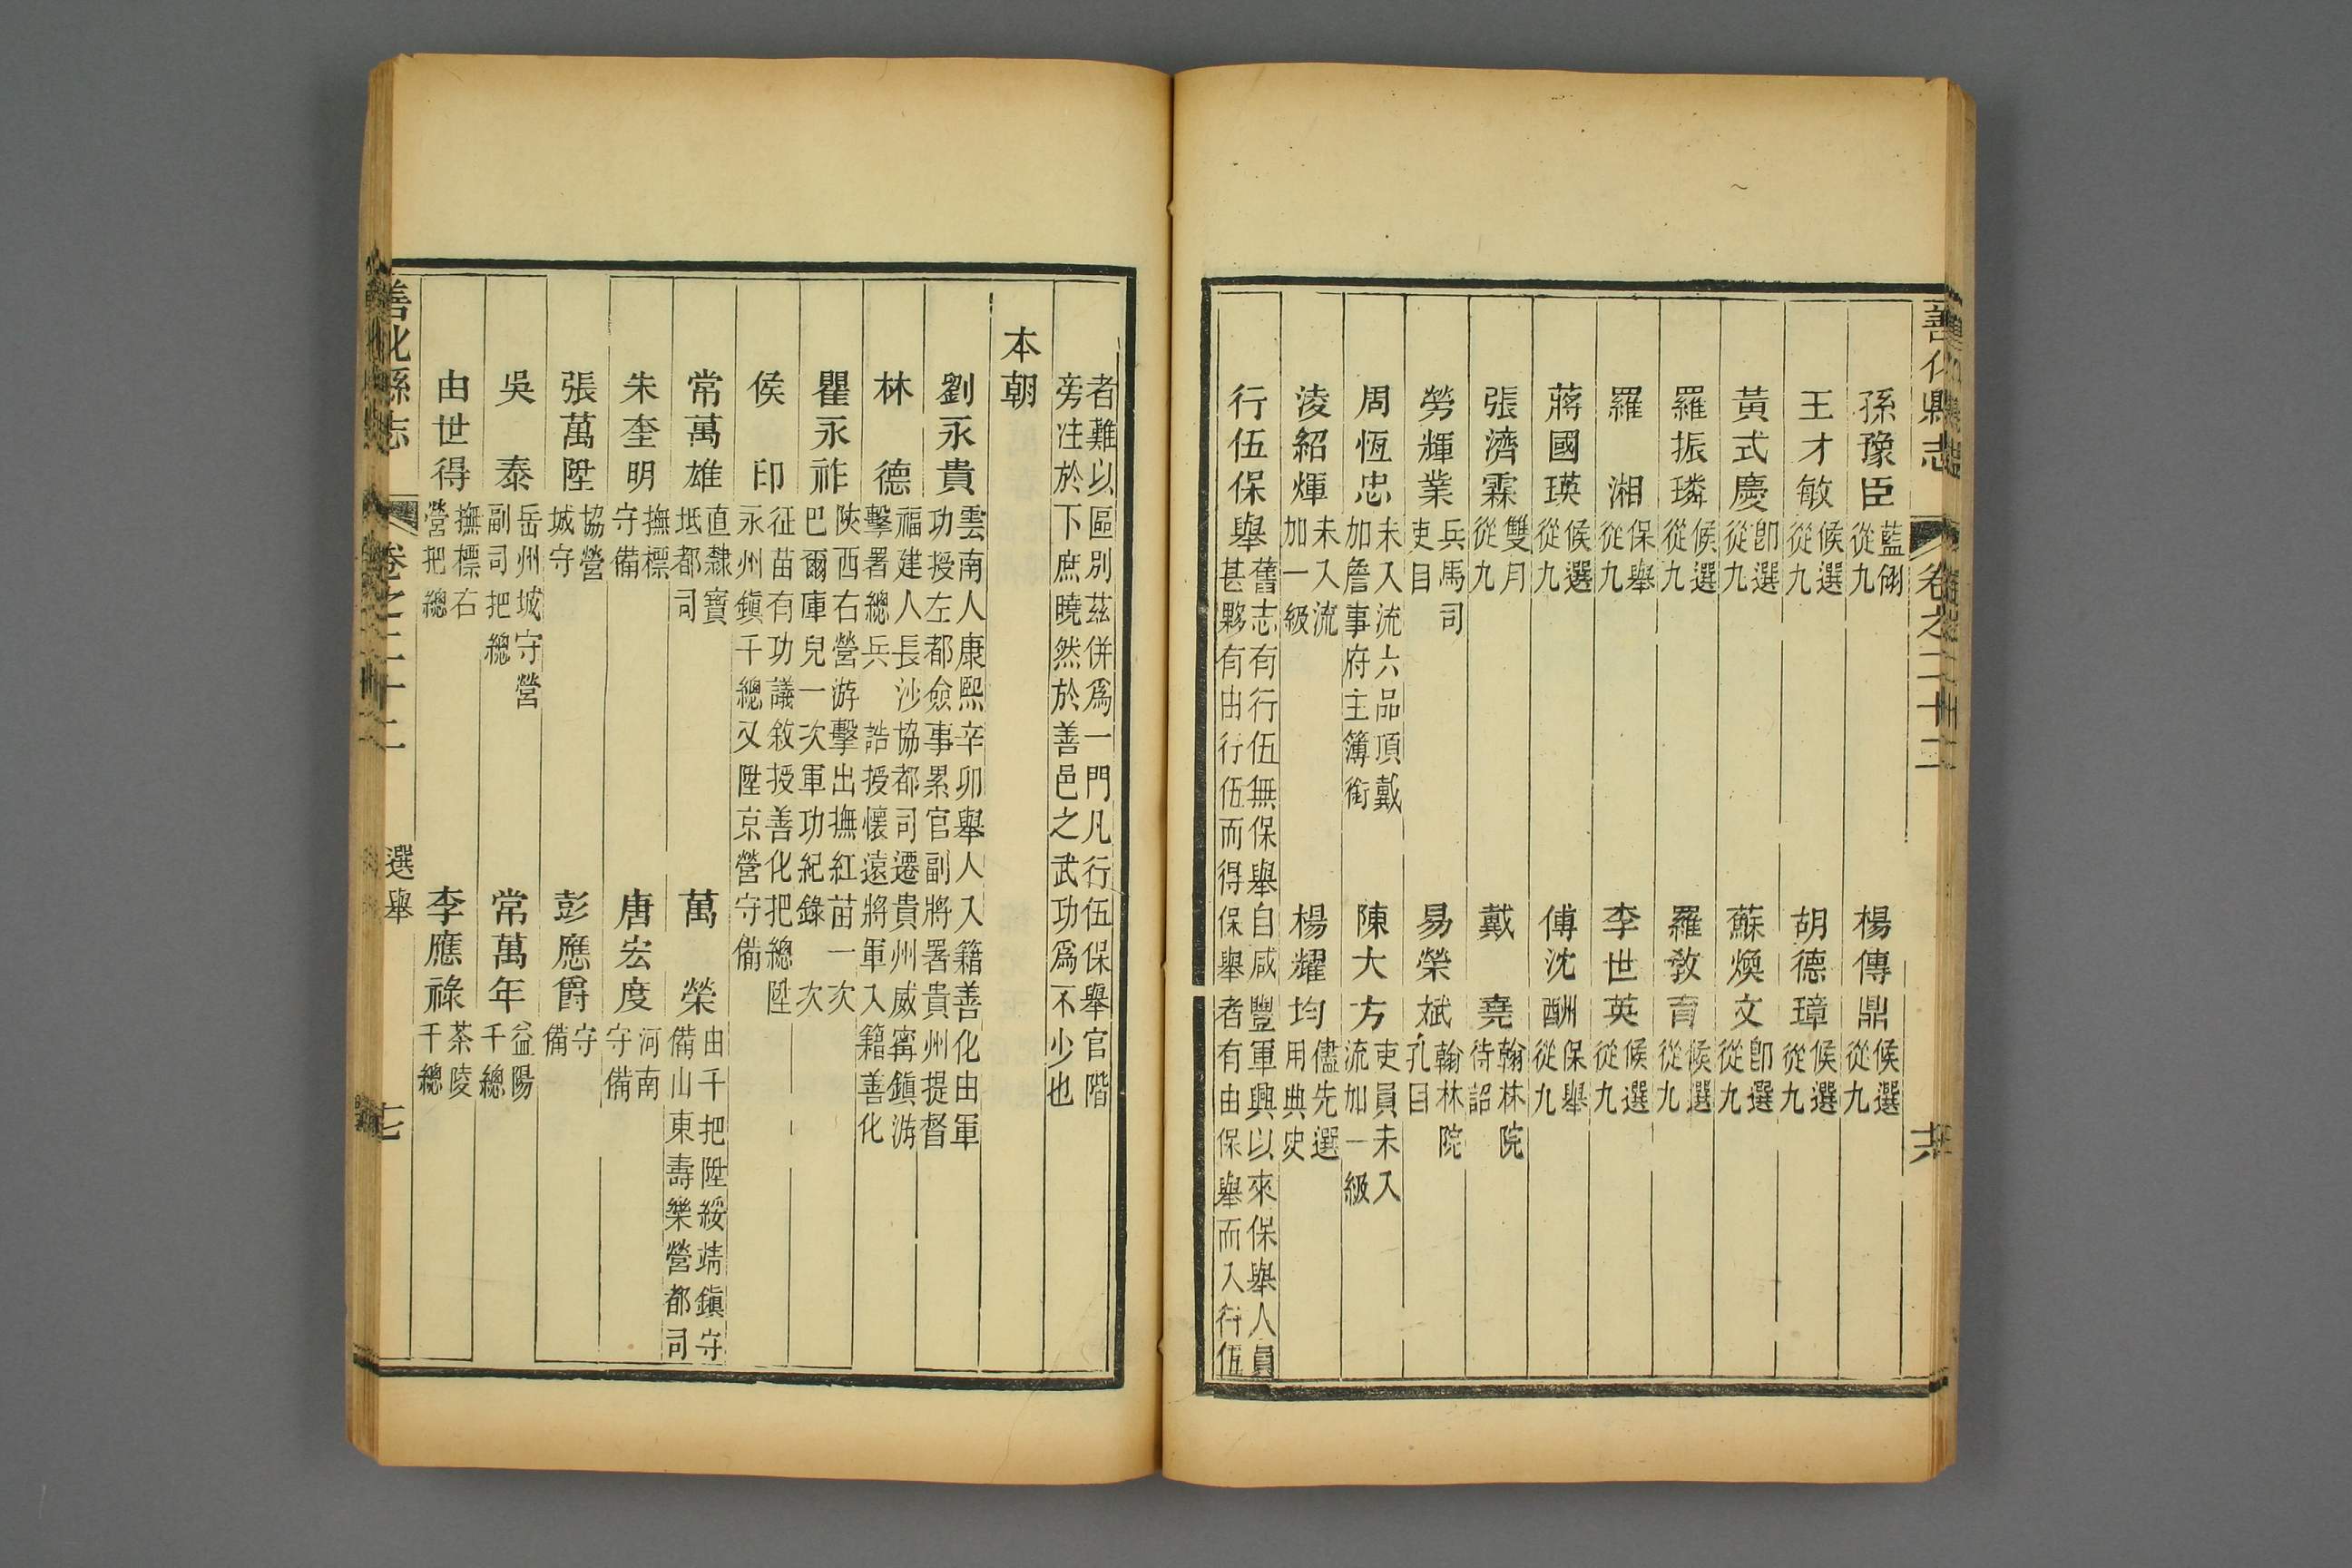 善化縣志
卷之二十二
孫豫臣藍翎從九
楊傳鼎候選從九
王才敏候選從九
胡德璋候選從九
黃式慶卽選從九
蘇煥文卽選從九
羅振璘候選從九
羅敎育候選從九
羅湘保舉從九
李世英候選從九
蔣國瑛候選從九
傅沈酬保舉從九
張濟霖雙月從九
戴堯翰林院待詔
勞輝業兵馬司吏目
易榮斌翰林院孔目
周恆忠未入流六品頂戴加詹事府主簿銜
陳大方吏員未入流加一級
淩紹煇未入流加一級
楊耀均儘先選用典史
行伍保舉舊志有行伍無保舉自咸豐軍興以來保舉人員甚夥有由行伍而得保舉者有由保舉而入行伍
者難以區別茲併爲一門凡行伍保舉官階旁注於下庶曉然於善邑之武功爲不少也
本朝
劉永貴雲南人康熙辛卯舉人入籍善化由軍功授左都僉事累官副將署貴州提督
林德福建人長沙協都司遷貴州威甯鎭游擊署總兵誥授懷遠將軍入籍善化
瞿永祚陝西右營游擊出撫紅苗一次巴爾庫兒一次軍功紀錄次
侯印征苗有功議敘授善化把總陞永州鎭千總又陞京營守備
常萬雄直隸寶坻都司
萬榮由千把陞綏靖鎭守備山東壽樂營都司
朱奎明撫標守備
唐宏度河南守備
張萬陞協營城守
彭應爵守備
吳泰岳州城守營副司把總
常萬年益陽千總
由世得撫標右營把總
李應祿茶陵千總
善化縣志
卷之二十二
選舉